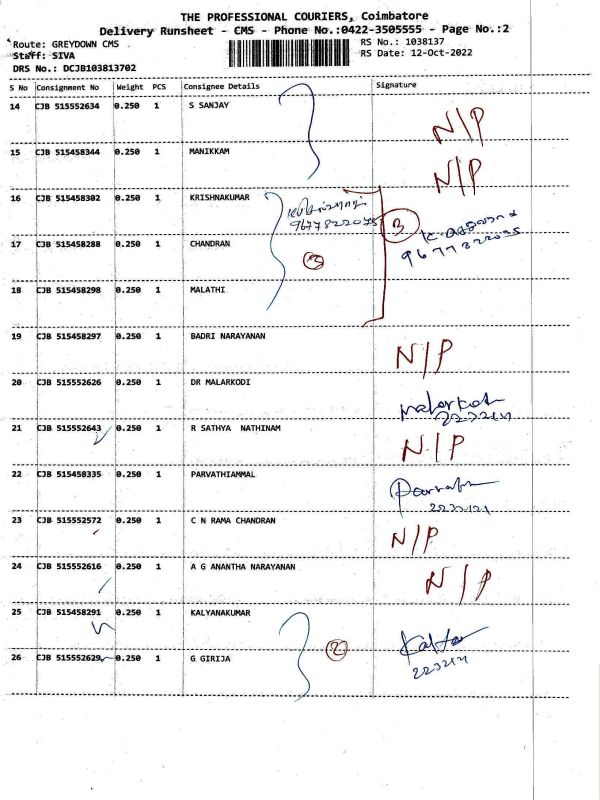 THE PROFESSIONAL COURIERS, Coimbatore
Delivery Runsheet - CMS - Phone No.:0422-3505555 - Page No.:2
Route: GREYDOWN CMS RS No.: 1038137
Staff: SIVA RS Date: 12-Oct-2022
DRS No.: DCJB103813702
S No Consignment No Weight PCS Consignee Details Signature
14 CJB 515552634 0.250 1 S SANJAY N/P
15 CJB 515458344 0.250 1 MANIKKAM N/P
16 CJB 515458302 0.250 1 KRISHNAKUMAR
9677822075 3
9677822075
17 CJB 515458288 0.250 1 CHANDRAN 3
18 CJB 515458298 0.250 1 MALATHI
19 CJB 515458297 0.250 1 BADRI NARAYANAN N/P
20 CJB 515552626 0.250 1 DR MALARKODI
21 CJB 515552643 0.250 1 R SATHYA NATHINAM N/P
22 CJB 515458335 0.250 1 PARVATHIAMMAL
23 CJB 515552572 0.250 1 C N RAMA CHANDRAN N/P
24 CJB 515552616 0.250 1 A G ANANTHA NARAYANAN N/P
25 CJB 515458291 0.250 1 KALYANAKUMAR
26 CJB 515552629 0.250 1 G GIRIJA 2